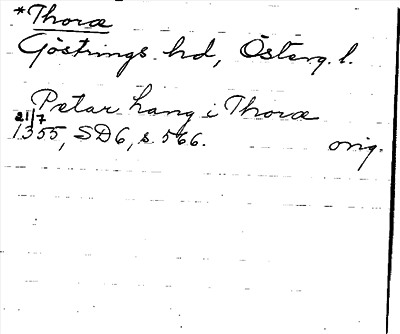 *Thoræ
Göstrings hd, Österg. l.
Petar hang i Thoræ
21/7
1355, SD6, s. 566.
orig.